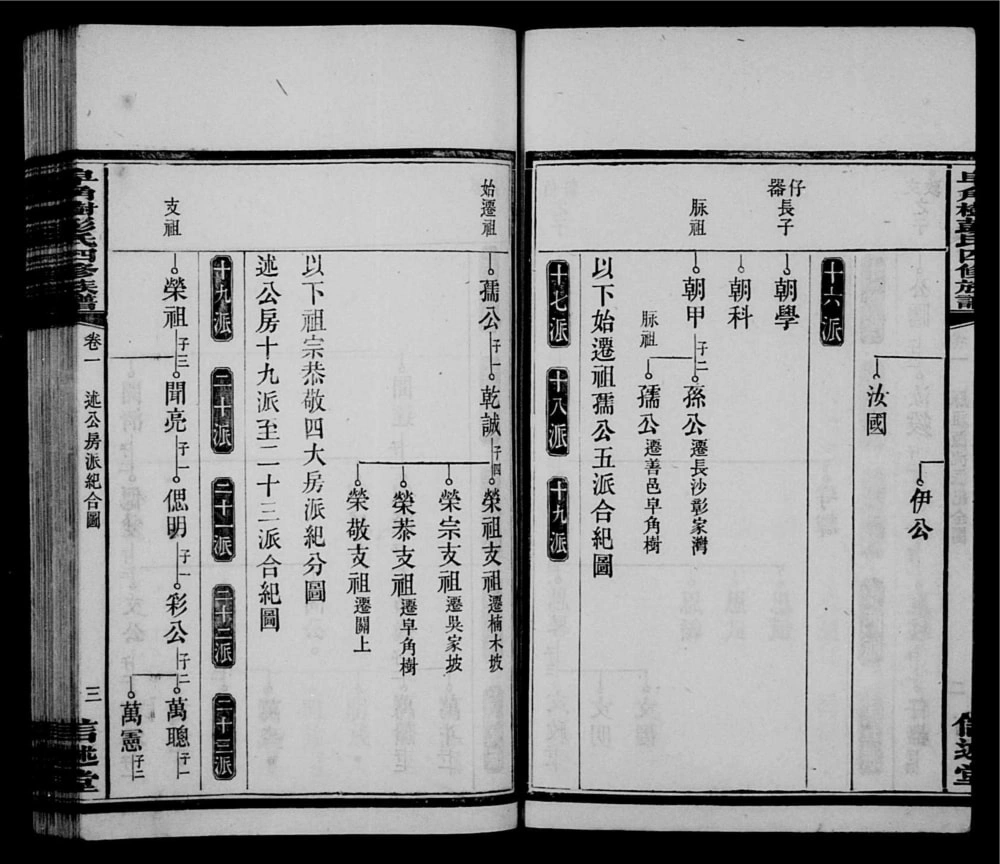 伊公
汝國
十六派
仔器長子
朝學
朝科
脉祖
朝甲 子二 孫公 遷長沙彭家灣
脉祖
孺公 遷善邑皁角樹
以下始遷祖孺公五派合紀圖
十七派 十八派 十九派
始遷祖
孺公 子一 乾誠 子四 榮祖支祖 遷楠木坡
榮宗支祖 遷吳家坡
榮恭支祖 遷皁角樹
榮敬支祖 遷關上
以下祖宗恭敬四大房派紀分圖
述公房十九派至二十三派合紀圖
十九派 二十派 二十一派 二十二派 二十三派
支祖
榮祖 子三 聞亮 子一 偲明 子一 彩公 子二 萬聰 子一
萬憲 子二
皁角樹彭氏四修族譜 卷一 述公房派紀合圖 三 信述堂